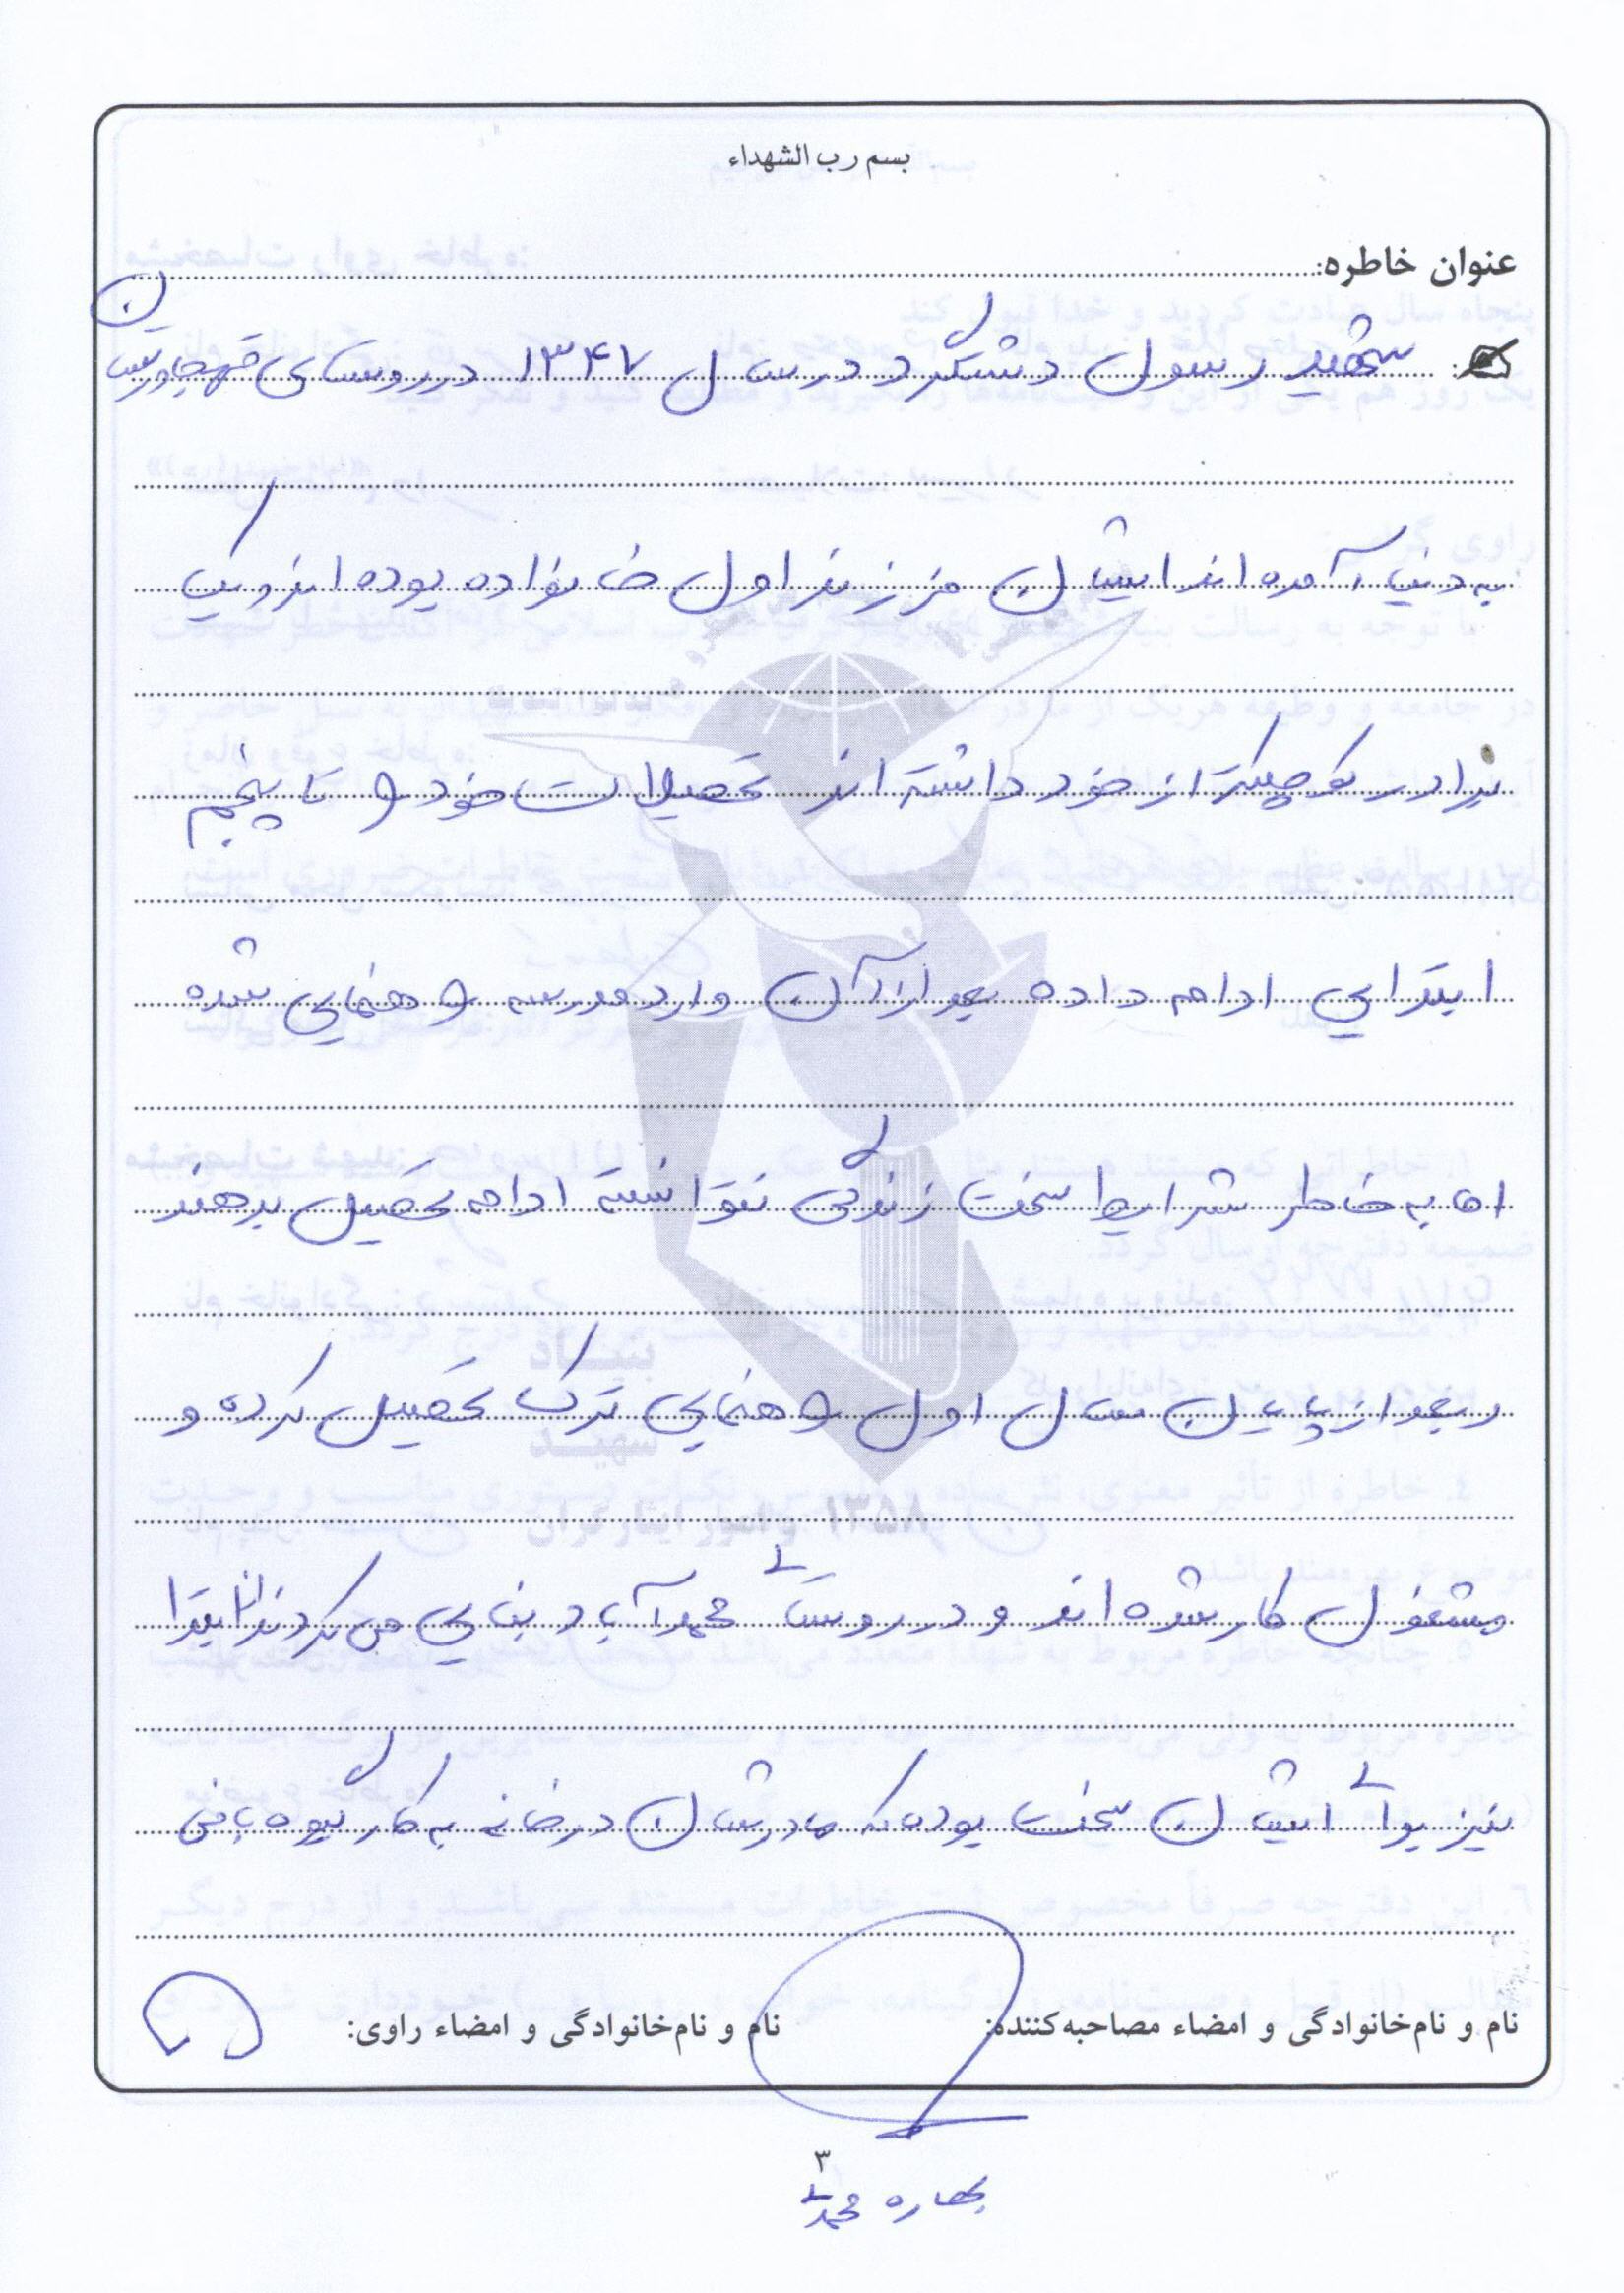 بسم رب الشهداء
عنوان خاطره:
شهید رسول دشتگرد در سال ۱۳۴۷ در روستای قهجاورستان
به دنیا آمده اند ایشان فرزند اول خانواده بوده اند و یک
برادر کوچکتر از خود داشته اند تحصیلات خود را تا پنجم
ابتدایی ادامه داده بعد از آن وارد مدرسه راهنمایی شده
اما به خاطر شرایط سخت زندگی نتوانسته ادامه تحصیل بدهند
و بعد از پایان سال اول راهنمایی ترک تحصیل کرده و
مشغول کار شده اند و در روستای محمدآباد بنایی می کردند ابتدا
نیز برای ایشان سخت بوده که مادرشان در خانه به کار گیوه بافی
نام و نام‌خانوادگی و امضاء مصاحبه‌کننده: نام و نام‌خانوادگی و امضاء راوی:
۳
بهاره محمدی